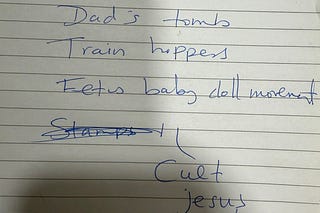 Dad's tomb
Train hoppers
Fetus baby doll movement
Stamps
Cult
jesus